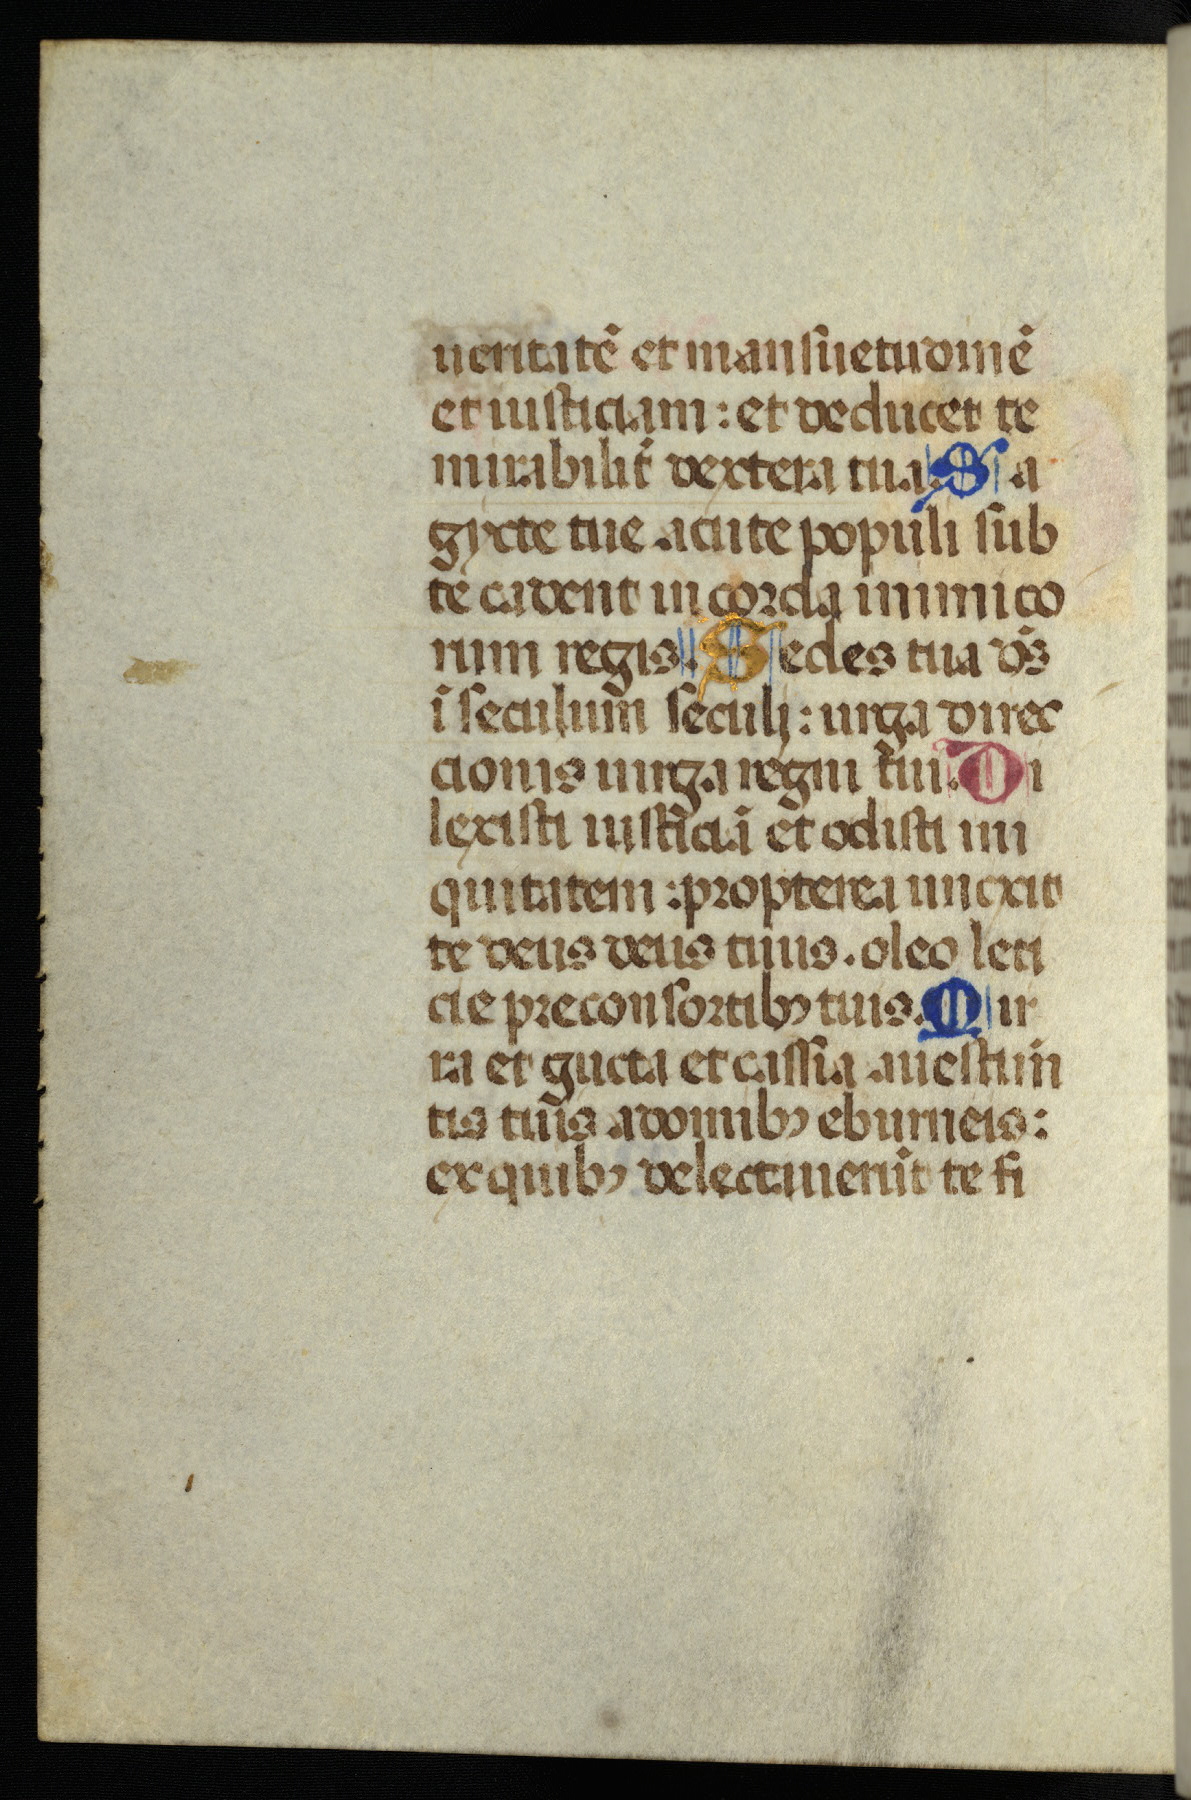 ueritatē et mansuetudinē
et iusticiam : et deducet te
mirabilit̄ dextera tua. Sa
gycte tue acute populi sub
te cadent in corda inimico
rum regis. Sedes tua d̄s
ī seculum seculi : uirga direc
cionis uirga regni tui. Di
lexisti iusticiā et odisti ini
quitatem : propterea uncxit
te deus deus tuus. oleo leti
cie pre consortibꝫ tuis. Mir
ra et gucta et cassia a uestim̄
tis tuis a domibꝫ eburneis :
ex quibꝫ delectauerūt te fi